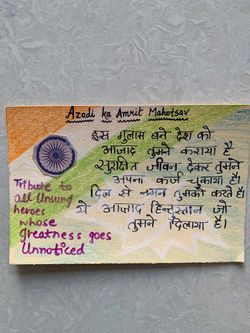 Azadi ka Amrit Mahotsav
इस गुलाम बने देश को
आजाद तुमने कराया है
सुरक्षित जीवन देकर तुमने
अपना कर्ज चुकाया है।
दिल से नमन तुमको करते है।
ये आजाद हिन्दुस्तान जो
तुमने दिलाया है।
Tribute to
all Unsung
heroes
whose
greatness goes
Unnoticed